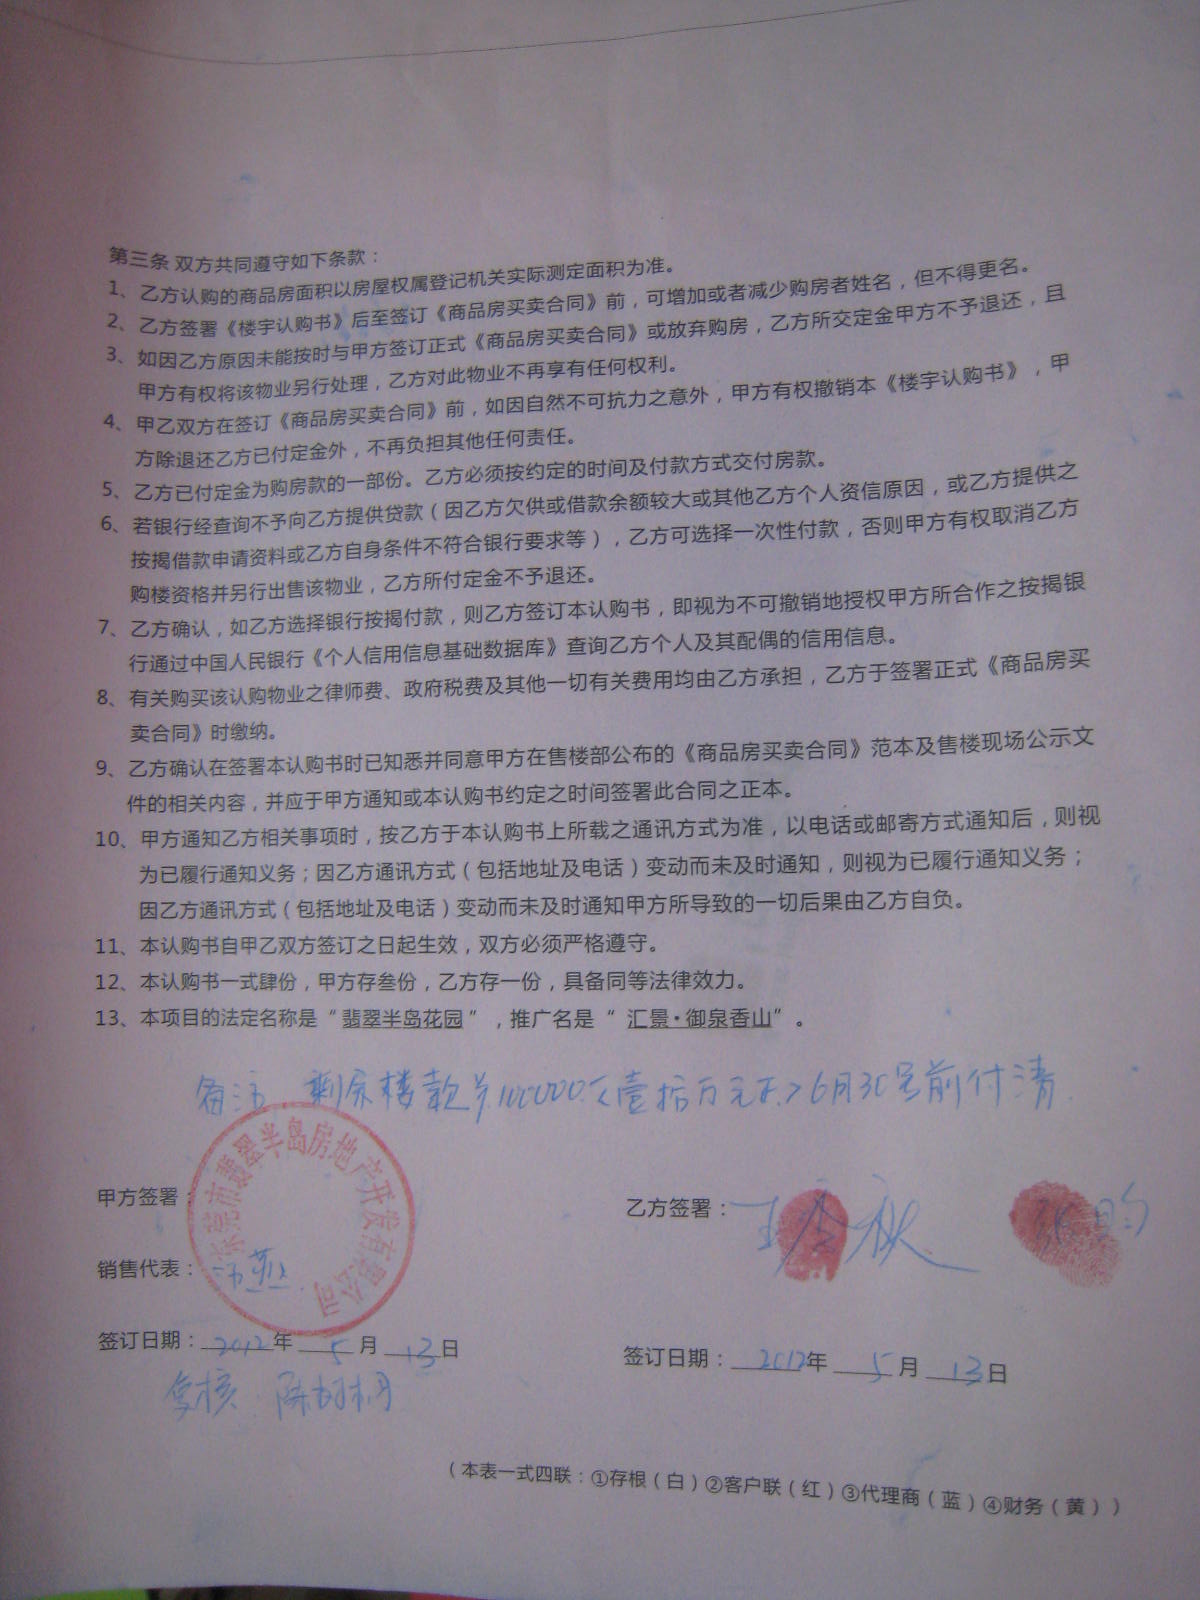 第三条 双方共同遵守如下条款：
1、乙方认购的商品房面积以房屋权属登记机关实际测定面积为准。
2、乙方签署《楼宇认购书》后至签订《商品房买卖合同》前，可增加或者减少购房者姓名，但不得更名。
3、如因乙方原因未能按时与甲方签订正式《商品房买卖合同》或放弃购房，乙方所交定金甲方不予退还，且
甲方有权将该物业另行处理，乙方对此物业不再享有任何权利。
4、甲乙双方在签订《商品房买卖合同》前，如因自然不可抗力之意外，甲方有权撤销本《楼宇认购书》，甲
方除退还乙方已付定金外，不再负担其他任何责任。
5、乙方已付定金为购房款的一部份。乙方必须按约定的时间及付款方式交付房款。
6、若银行经查询不予向乙方提供贷款（因乙方欠供或借款余额较大或其他乙方个人资信原因，或乙方提供之
按揭借款申请资料或乙方自身条件不符合银行要求等），乙方可选择一次性付款，否则甲方有权取消乙方
购楼资格并另行出售该物业，乙方所付定金不予退还。
7、乙方确认，如乙方选择银行按揭付款，则乙方签订本认购书，即视为不可撤销地授权甲方所合作之按揭银
行通过中国人民银行《个人信用信息基础数据库》查询乙方个人及其配偶的信用信息。
8、有关购买该认购物业之律师费、政府税费及其他一切有关费用均由乙方承担，乙方于签署正式《商品房买
卖合同》时缴纳。
9、乙方确认在签署本认购书时已知悉并同意甲方在售楼部公布的《商品房买卖合同》范本及售楼现场公示文
件的相关内容，并应于甲方通知或本认购书约定之时间签署此合同之正本。
10、甲方通知乙方相关事项时，按乙方于本认购书上所载之通讯方式为准，以电话或邮寄方式通知后，则视
为已履行通知义务；因乙方通讯方式（包括地址及电话）变动而未及时通知，则视为已履行通知义务；
因乙方通讯方式（包括地址及电话）变动而未及时通知甲方所导致的一切后果由乙方自负。
11、本认购书自甲乙双方签订之日起生效，双方必须严格遵守。
12、本认购书一式肆份，甲方存叁份，乙方存一份，具备同等法律效力。
13、本项目的法定名称是“翡翠半岛花园”，推广名是“汇景·御泉香山”。
备注 剩余楼款 100000 壹拾万元 6月30号前付清
东莞市翡翠半岛房地产开发有限公司
甲方签署：
乙方签署：王 秋
销售代表：
签订日期：2012年5月13日
签订日期：2012年5月13日
复核
（本表一式四联：①存根（白）②客户联（红）③代理商（蓝）④财务（黄））